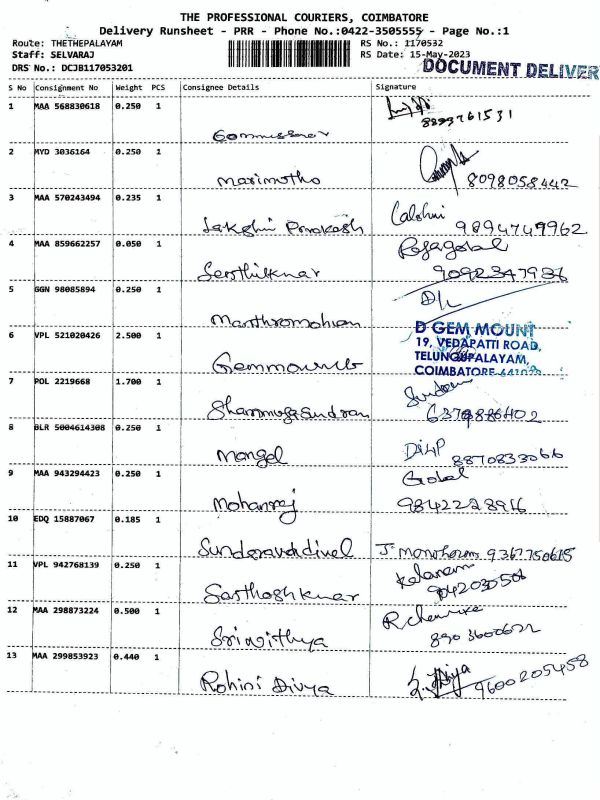 THE PROFESSIONAL COURIERS, COIMBATORE
Delivery Runsheet - PRR - Phone No.:0422-3505555 - Page No.:1
Route: THETHEPALAYAM
RS No.: 1170532
Staff: SELVARAJ
RS Date: 15-May-2023
DRS No.: DCJB117053201
DOCUMENT DELIVER
S No Consignment No Weight PCS Consignee Details Signature
1 MAA 568830618 0.250 1
8899761531
Commissnar
2 MYD 3036164 0.250 1
Marimutho 8098058442
3 MAA 570243494 0.235 1
Lakshmi Prakash 9894749962
4 MAA 859662257 0.050 1 Rajagobal
Senthilkmar 9092347936
5 GGN 98085894 0.250 1
6 VPL 521020426 2.500 1
D GEM MOUNT
19, VEDAPATTI ROAD,
TELUNGUPALAYAM,
COIMBATORE-641039
Gemmount
7 POL 2219668 1.700 1
Shanmugasundram
8 BLR 5004614308 0.250 1
Mangal 8870833066
9 MAA 943294423 0.250 1 Gobal
Mohanraj
10 EDQ 15887067 0.185 1
Sundaravadivel J. Manoharan 9367750615
11 VPL 942768139 0.250 1
Santhoshkumar
12 MAA 298873224 0.500 1
Srinithya 8903600622
13 MAA 299853923 0.440 1
Rohini Divya 9600205458